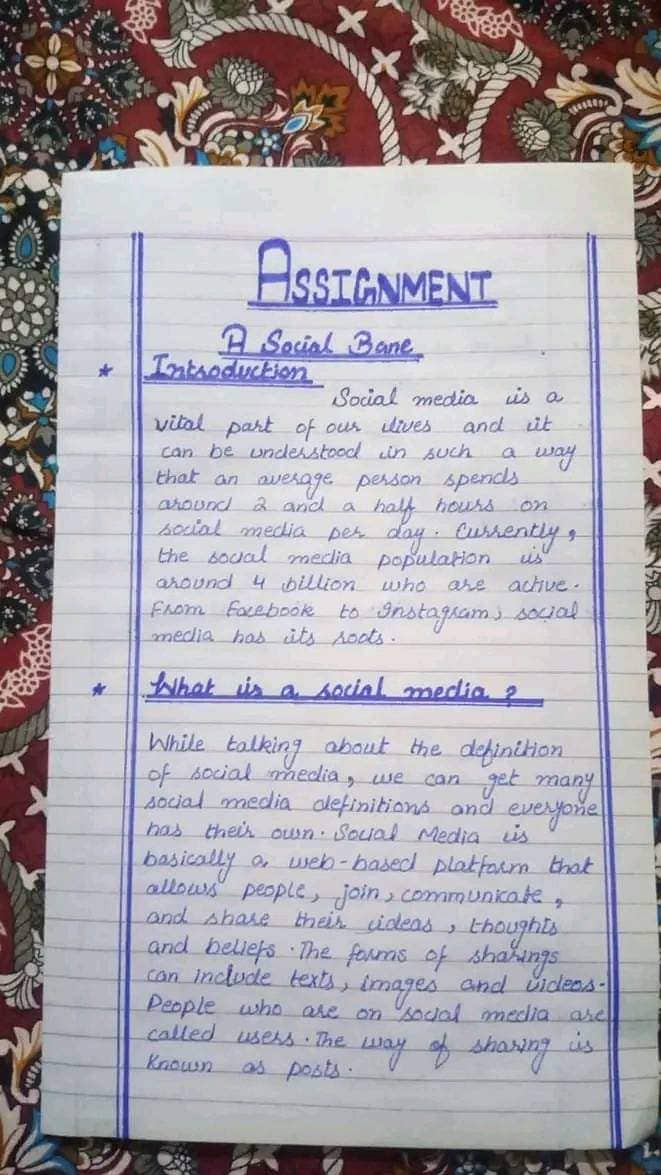 ASSIGNMENT
A Social Bane
* Introduction
Social media is a
vital part of our lives and it
can be understood in such a way
that an average person spends
around 2 and a half hours on
social media per day. Currently,
the social media population is
around 4 billion who are active.
From Facebook to Instagram, social
media has its roots.
* What is a social media?
While talking about the definition
of social media, we can get many
social media definitions and everyone
has their own. Social Media is
basically a web-based platform that
allows people, join, communicate,
and share their ideas, thoughts
and beliefs. The forms of sharings
can include texts, images and videos.
People who are on social media are
called users. The way of sharing is
known as posts.